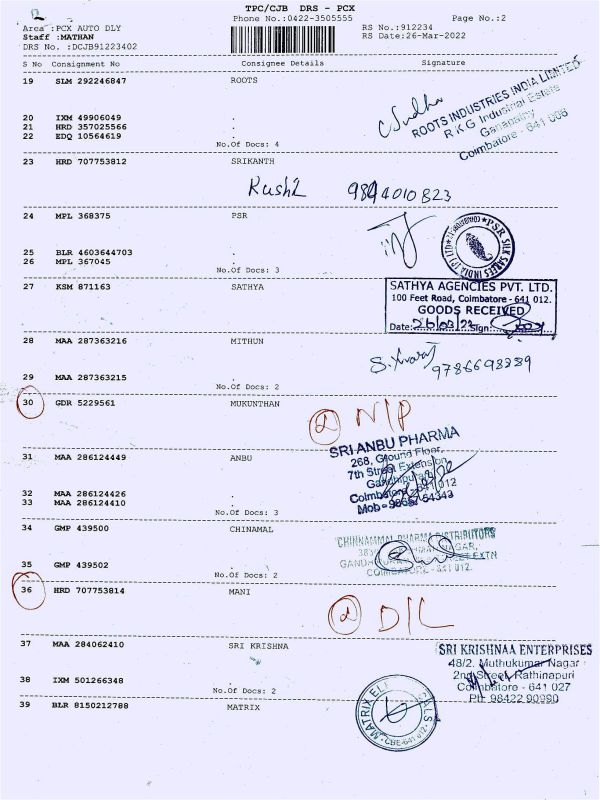 TPC/CJB DRS - PCX
Phone No.:0422-3505555 Page No.:2
Area :PCX AUTO DLY RS No.:912234
Staff :MATHAN RS Date:26-Mar-2022
DRS No. :DCJB91223402
S No Consignment No Consignee Details Signature
19 SLM 292246847 ROOTS
ROOTS INDUSTRIES INDIA LIMITED
R K G Industrial Estate
Ganapathy
Coimbatore - 641 006
20 IXM 49906049 .
21 HRD 357025566 .
22 EDQ 10564619 .
No.Of Docs: 4
23 HRD 707753812 SRIKANTH
9894010823
24 MPL 368375 PSR
PSR SILK SAREES INDIA (P) LTD
25 BLR 4603644703 .
26 MPL 367045 .
No.Of Docs: 3
27 KSM 871163 SATHYA
SATHYA AGENCIES PVT. LTD.
100 Feet Road, Coimbatore - 641 012.
GOODS RECEIVED
Date: 26/03/22 Sign:
28 MAA 287363216 MITHUN
29 MAA 287363215 .
No.Of Docs: 2
30 GDR 5229561 MUKUNTHAN
31 MAA 286124449 ANBU
SRI ANBU PHARMA
268, Ground Floor,
7th Street Extension
Gandhipuram
32 MAA 286124426 .
33 MAA 286124410 .
No.Of Docs: 3
34 GMP 439500 CHINAMAL
CHINNAMMAL PHARMA DISTRIBUTORS
35 GMP 439502 .
No.Of Docs: 2
36 HRD 707753814 MANI
D/L
37 MAA 284062410 SRI KRISHNA
SRI KRISHNAA ENTERPRISES
48/2, Muthukumar Nagar
2nd Street, Rathinapuri
Coimbatore - 641 027
PH: 98422 90990
38 IXM 501266348 .
No.Of Docs: 2
39 BLR 8150212788 MATRIX